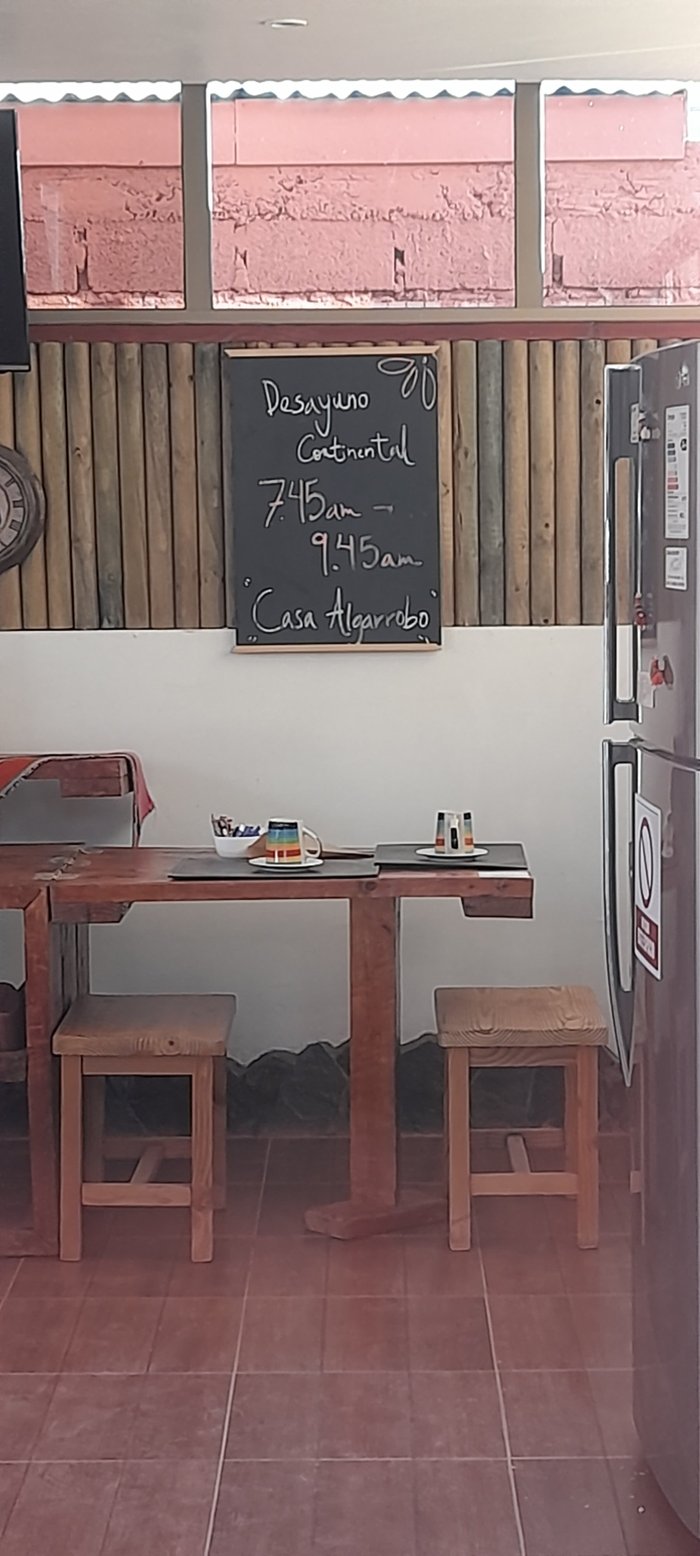 Desayuno
Continental
7.45am -
9.45am
"Casa Algarrobo"